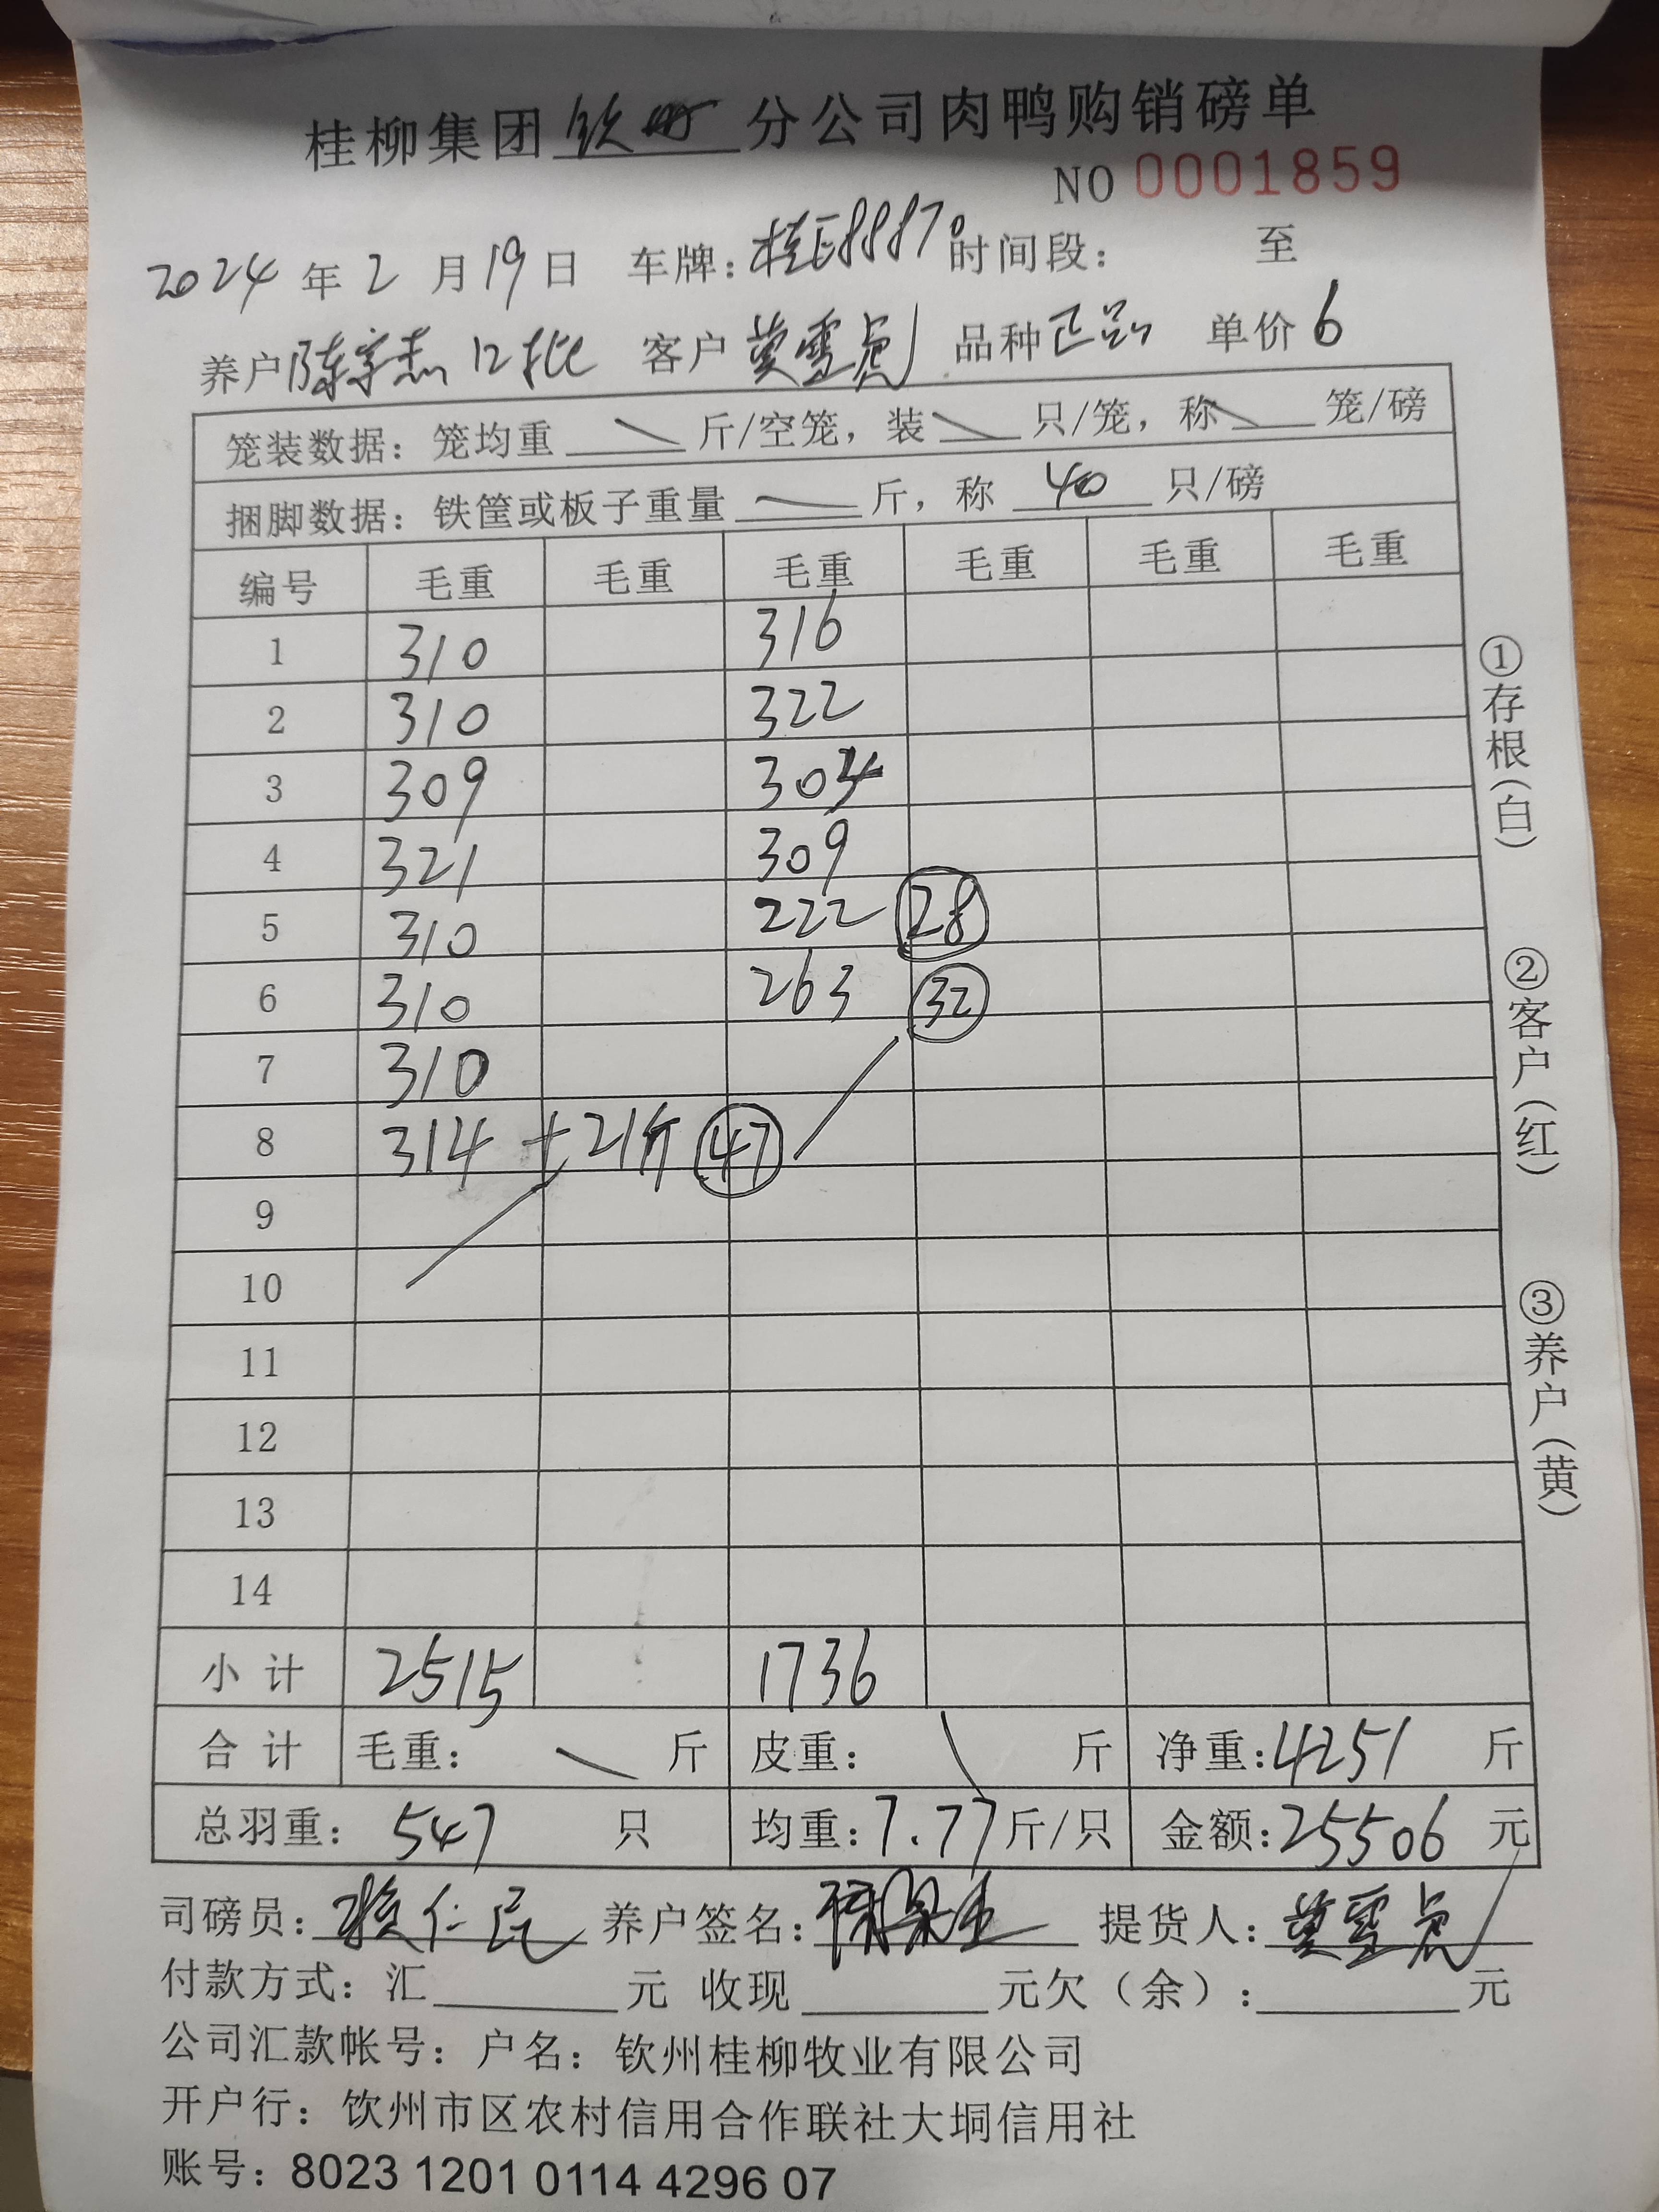 桂柳集团钦州分公司肉鸭购销磅单
NO 0001859
2024年2月19日 车牌:桂E88870 时间段: 至
养户陈宗志12批 客户莫雪虎 品种正品 单价6
笼装数据:笼均重 斤/空笼,装 只/笼,称 笼/磅
捆脚数据:铁筐或板子重量 斤,称 40 只/磅
编号 毛重 毛重 毛重 毛重 毛重 毛重
1 310 316
2 310 322
3 309 304
4 321 309
5 310 222 28
6 310 263 32
7 310
8 314 +21斤 47
9
10
11
12
13
14
小计 2515 1736
合计 毛重: 斤 皮重: 斤 净重:4251 斤
总羽重: 547 只 均重:7.77斤/只 金额:25506 元
司磅员: 仁民 养户签名: 提货人:莫雪虎
付款方式:汇 元 收现 元欠(余): 元
公司汇款帐号:户名:钦州桂柳牧业有限公司
开户行:钦州市区农村信用合作联社大垌信用社
账号:8023 1201 0114 4296 07
①存根(白)
②客户(红)
③养户(黄)